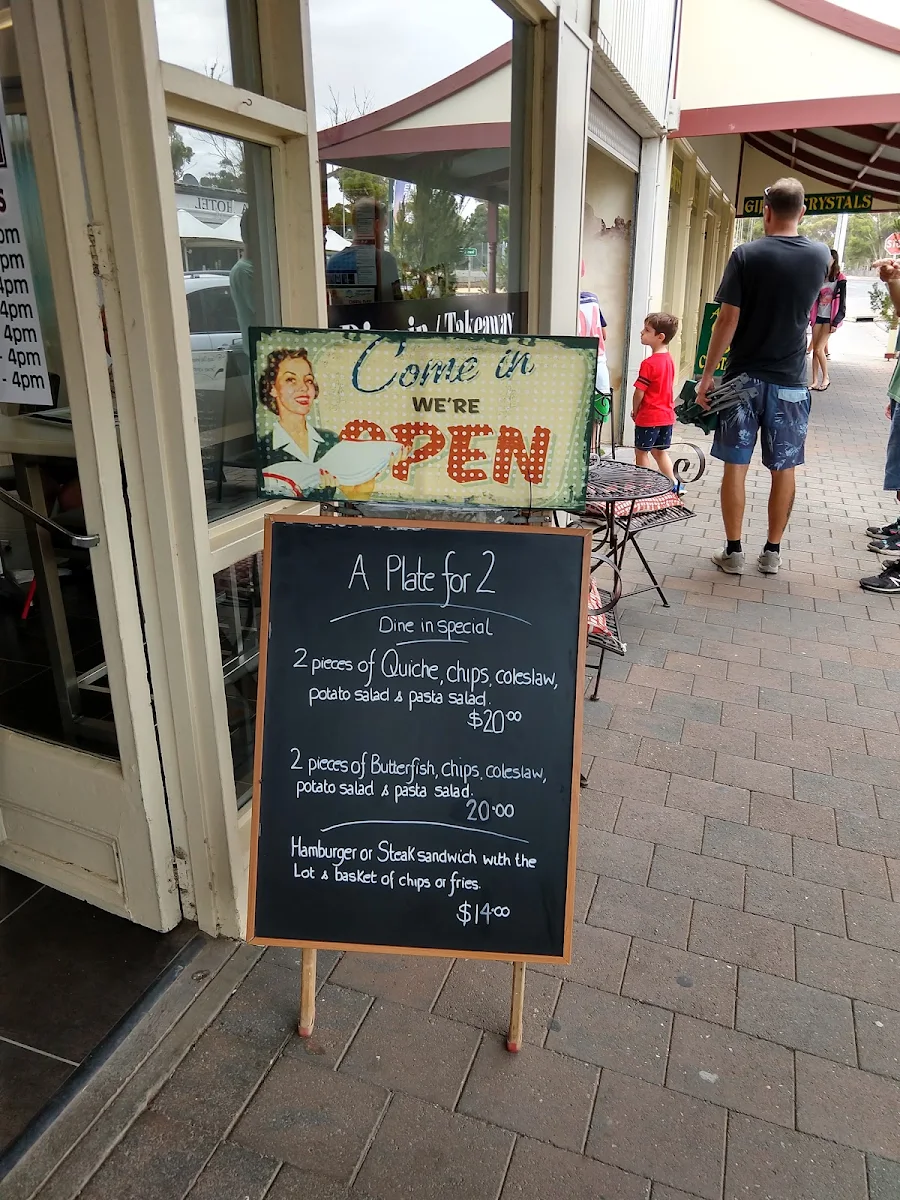 S
pm
pm
4pm
4pm
4pm
- 4pm
- 4pm
HOTEL
Dine in / Takeaway
Come in
WE'RE
OPEN
A Plate for 2
Dine in special
2 pieces of Quiche, chips, coleslaw,
potato salad & pasta salad.
$20.00
2 pieces of Butterfish, chips, coleslaw,
potato salad & pasta salad.
20.00
Hamburger or Steak sandwich with the
Lot & basket of chips or fries.
$14.00
CRYSTALS